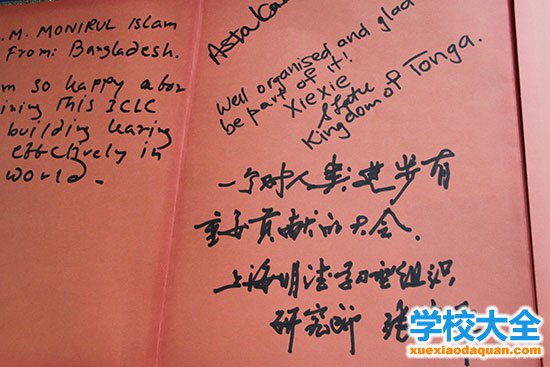 . M. MONIRUL Islam
From: Bangladesh.
m so happy abou
ining This ICLC
building learing
effectively in
world.
Well organised and glad
be part of it!
XieXie
Kingdom of Tonga.
一个对人类进步有
重要贡献的大会.
上海明法学习型组织
研究所 张
学校大全
xuexiaodaquan.com